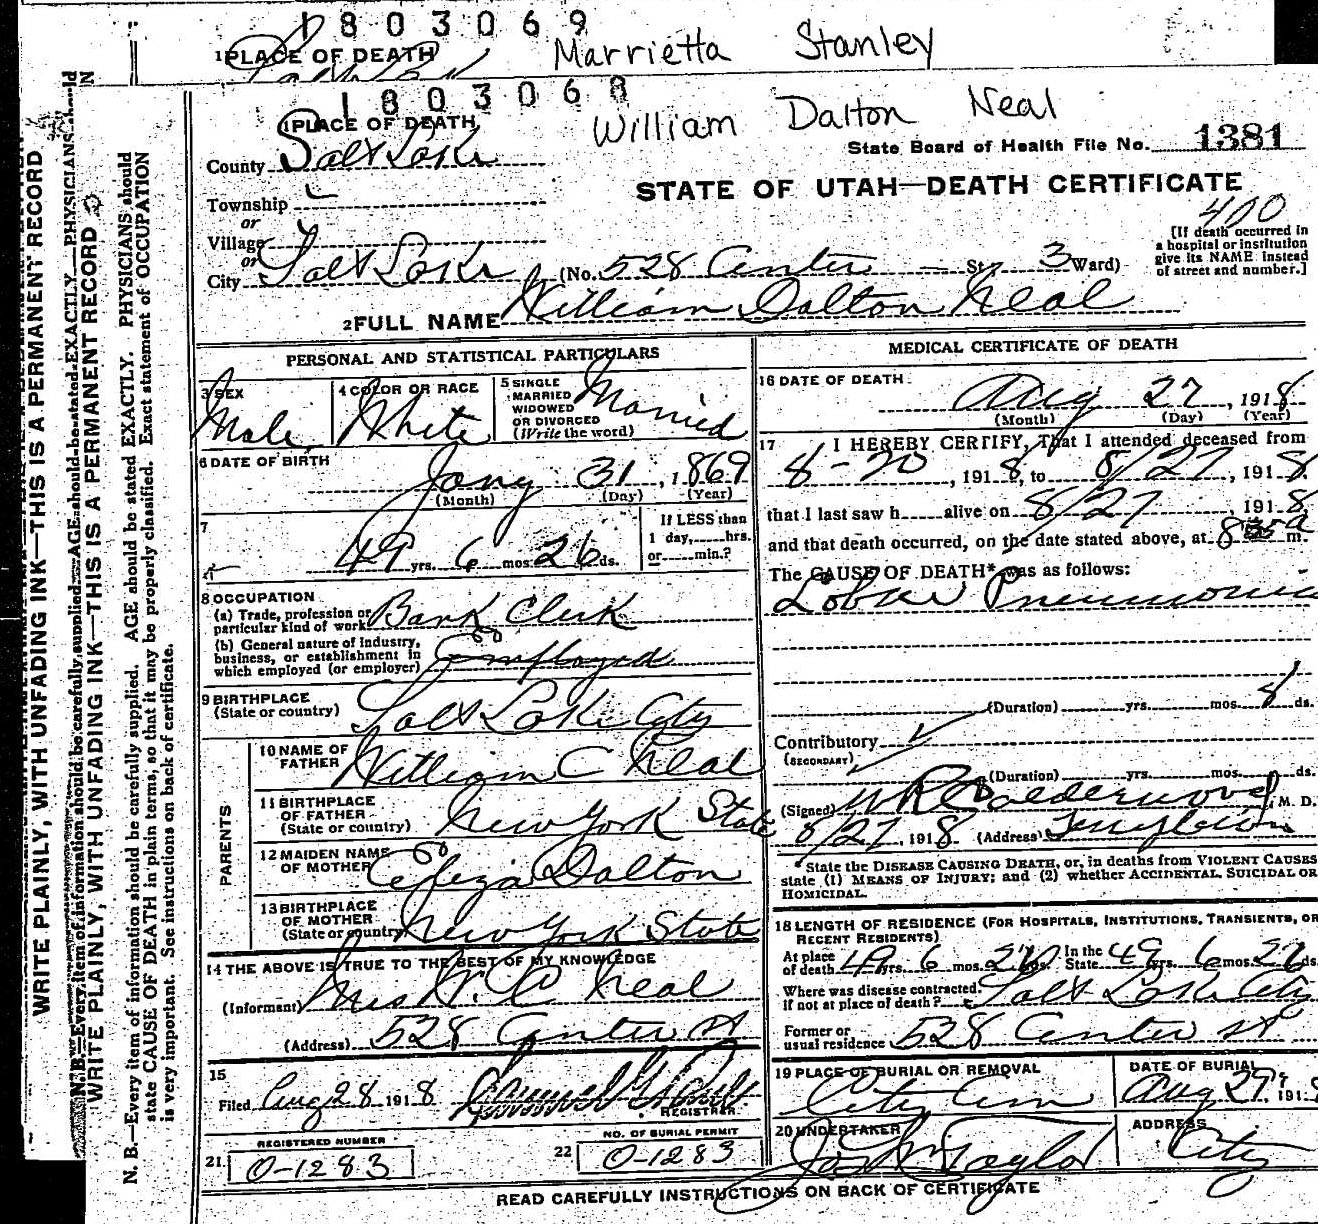 1803069
1 PLACE OF DEATH
Marrietta Stanley
1803068
William Dalton Neal
1 PLACE OF DEATH
State Board of Health File No. 1381
County Salt Lake
STATE OF UTAH—DEATH CERTIFICATE
Township
400
or
Village
or
[If death occurred in
a hospital or institution
give its NAME instead
of street and number.]
City Salt Lake (No. 528 Center St. 3 Ward)
2 FULL NAME William Dalton Neal
PERSONAL AND STATISTICAL PARTICULARS
3 SEX
Male
4 COLOR OR RACE
White
5 SINGLE
MARRIED
WIDOWED
OR DIVORCED
(Write the word)
Married
6 DATE OF BIRTH
Jany 31, 1869
(Month) (Day) (Year)
7
49 yrs. 6 mos. 26 ds.
If LESS than
1 day, hrs.
or min.?
8 OCCUPATION
(a) Trade, profession or
particular kind of work Bank Clerk
(b) General nature of industry,
business, or establishment in
which employed (or employer) Employed
9 BIRTHPLACE
(State or country) Salt Lake City
PARENTS
10 NAME OF
FATHER William C Neal
11 BIRTHPLACE
OF FATHER
(State or country) New York State
12 MAIDEN NAME
OF MOTHER Eliza Dalton
13 BIRTHPLACE
OF MOTHER
(State or country) New York State
14 THE ABOVE IS TRUE TO THE BEST OF MY KNOWLEDGE
(Informant) Mrs W. C Neal
(Address) 528 Center St
15
Filed Aug 28 1918
REGISTRAR
REGISTERED NUMBER
21 0-1283
NO. OF BURIAL PERMIT
22 0-1283
MEDICAL CERTIFICATE OF DEATH
16 DATE OF DEATH
Aug 27, 1918
(Month) (Day) (Year)
17 I HEREBY CERTIFY, That I attended deceased from
8-20, 1918, to 8/27, 1918,
that I last saw h alive on 8/27, 1918,
and that death occurred, on the date stated above, at 8 a m.
The CAUSE OF DEATH* was as follows:
Lobar Pneumonia
(Duration) yrs. mos. 8 ds.
Contributory
(SECONDARY)
(Duration) yrs. mos. ds.
(Signed) W R Calderwood, M. D.
8/27, 1918 (Address)
*State the DISEASE CAUSING DEATH, or, in deaths from VIOLENT CAUSES
state (1) MEANS OF INJURY; and (2) whether ACCIDENTAL, SUICIDAL OR
HOMICIDAL.
18 LENGTH OF RESIDENCE (FOR HOSPITALS, INSTITUTIONS, TRANSIENTS, OR
RECENT RESIDENTS)
At place
of death 49 yrs. 6 mos. ds. In the
State 49 yrs. 6 mos. ds.
Where was disease contracted
if not at place of death? Salt Lake City
Former or
usual residence 528 Center St
19 PLACE OF BURIAL OR REMOVAL
City Cem
DATE OF BURIAL
Aug 29, 191
20 UNDERTAKER
Jos Wm Taylor
ADDRESS
City
READ CAREFULLY INSTRUCTIONS ON BACK OF CERTIFICATE
WRITE PLAINLY, WITH UNFADING INK—THIS IS A PERMANENT RECORD
N. B.—Every item of information should be carefully supplied. AGE should be stated EXACTLY. PHYSICIANS should
WRITE PLAINLY, WITH UNFADING INK—THIS IS A PERMANENT RECORD
N. B.—Every item of information should be carefully supplied. AGE should be stated EXACTLY. PHYSICIANS should
state CAUSE OF DEATH in plain terms, so that it may be properly classified. Exact statement of OCCUPATION
is very important. See instructions on back of certificate.